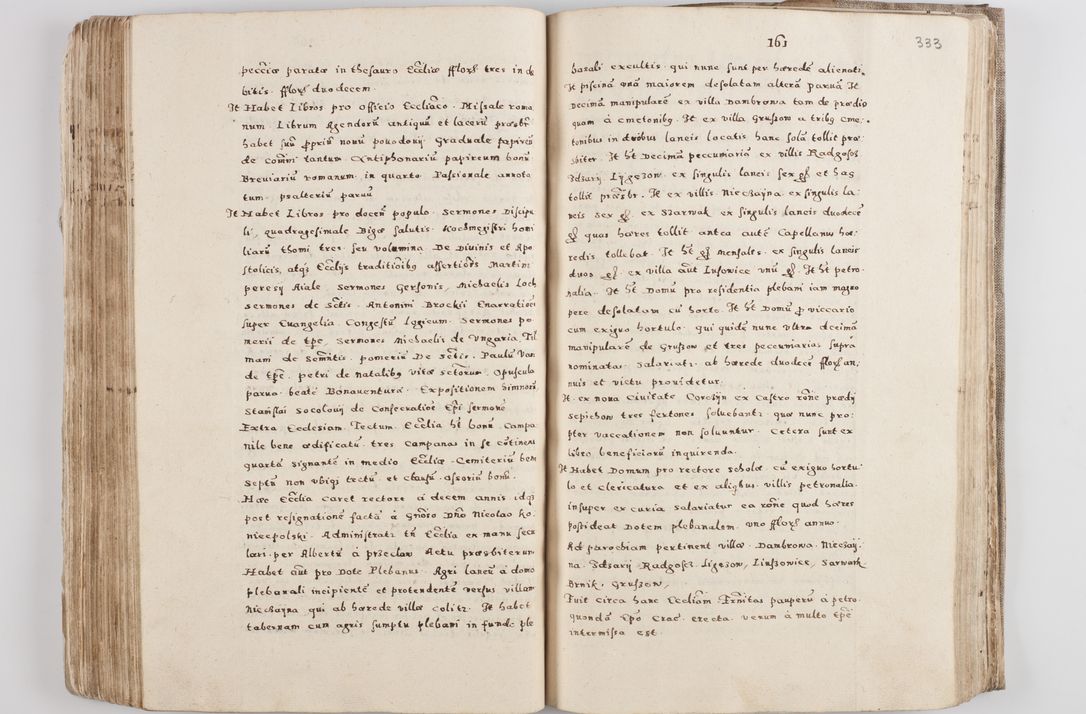 pecciæ paratæ in thesauro Eccliæ fflors tres in de
bitis fflors duodecem.
It Habet Libros pro officio Eccliaco. Missale roma
num. Librum Agendorũ antiquũ et lacerũ præsbtr
habet suũ ppriũ nouũ pouodouij Graduale papireũ
de comni tantum. Antiphonariũ papireum bonũ
Breuiariũ romanum in quarto. Passionale annota
tum. psalteriũ paruũ
It Habet Libros pro docen populo. Sermones Discipu
li, quadragesimale Bigæ salutis. Kochmegistri homi
liarũ thomi tres seu volumina De Diuinis et Apo
stolicis, atqs Ecclijs traditioibq assertiors Martini
peresij Aiale. Sermones Gersonis, Michaelis Loch
sermones de Sctis. Antonini Brockii Enarratioes
super Euangelia. Congestũ Logicum. Sermones po
merij de tpe, Sermones Michaelis de Vngaria, Pil
mam de Semnitis. pomeriũ De Sctis. Paulũ Van
de tpe. petri de natalibq vitæ sctorum. Opuscula
parua beate Bonauenturæ. Expositionem himnorũ
Stanislai Socolouij de Consecratioe Epi sermonẽ
Extra Ecclesiam. Tectum. Ecclia ht bonũ. Campa
nile bene ædificatũ tres campanas in se cõtinens
quartã signantẽ in medio Eccliæ. Cemiteriũ bene
Septũ non vbiqi tectũ, et clausũ. Ossoriũ bonũ.
Hæc Ecclia caret rectore á decem annis idqs
post resignationẽ factã á Gnoso Dno Nicolao Ko,
niecpolski. Administrati tñ Ecclia ex manu secu
lari per Albertũ á przeclaw Actu præsbiterum
Habet aut pro Dote Plebanus. Agri laneũ á domo
plebanali incipientẽ et protendentẽ versus villam
Nieczajna qui ab hærede villæ colitr. It habet
tabernam cum agris sumptu plebani in fundo ple
161
333
banali excultis qui nunc sunt per hæredẽ alienati.
It piscinã vnã maiorem desolatam alterã paruã It
Decimã manipularẽ ex villa Dambrowa tam de prædio
quam á cmetonibq. It ex villa Gruszow a tribq cme
tonibus in duobus laneis locatis hanc solã tollit præ
sbiter. It ht Decimã peccuniariã ex villis Radgoscz
Zdzarij Lijgezow. ex singulis laneis sex gs et has
tollit præsbr. It ex villis Nieczajna ex singulis la
neis sex gs. ex Szarwak ex singulis laneis duodece
gs quas hæres tollit antea autẽ Capellanus hæ
redis tollebat. It ht gs mensales ex singulis laneis
duos gs. ex villa aut Lusowice vnũ gs. It ht petro
nalia. It ht Domũ pro residentia plebani iam magno
pere desolatam cũ horto. It ht Domũ p viccario
cum exiguo hortulo. qui quidẽ nunc vltra decimã
manipularẽ de Gruszow et tres peccuniarias supra
nominatas. salariatr. ab hærede duodecẽ fflors an,
nuis et victu prouidetur.
It ex noua Ciuitate Corczijn ex Castro rõne prædij
Sepichow tres fertones soluebantr. quæ nunc pro,
pter vaccationem non soluuntur. Cetera sunt ex
libro beneficiorũ inquirenda.
It Habet Domum pro rectore scholæ cũ exiguo hortu
lo et Clericatura et ex aliqbus villis petronalia
insuper ex curia salariatur ea rõne quod hæres
possideat Dotem plebanalem. vno fflors annuo.
Ad parochiam pertinent villæ. Dambrowa. Nieczaij
na. Zdzarij Radgoscz. Ligezow, Liuszowice, Sarwark
Brnik, Gruszow,
Fuit circa hanc Eccliam Frnitas pauperũ á petro
quondã Epo Crac. erecta. verum á multo tpe
intermissa est.